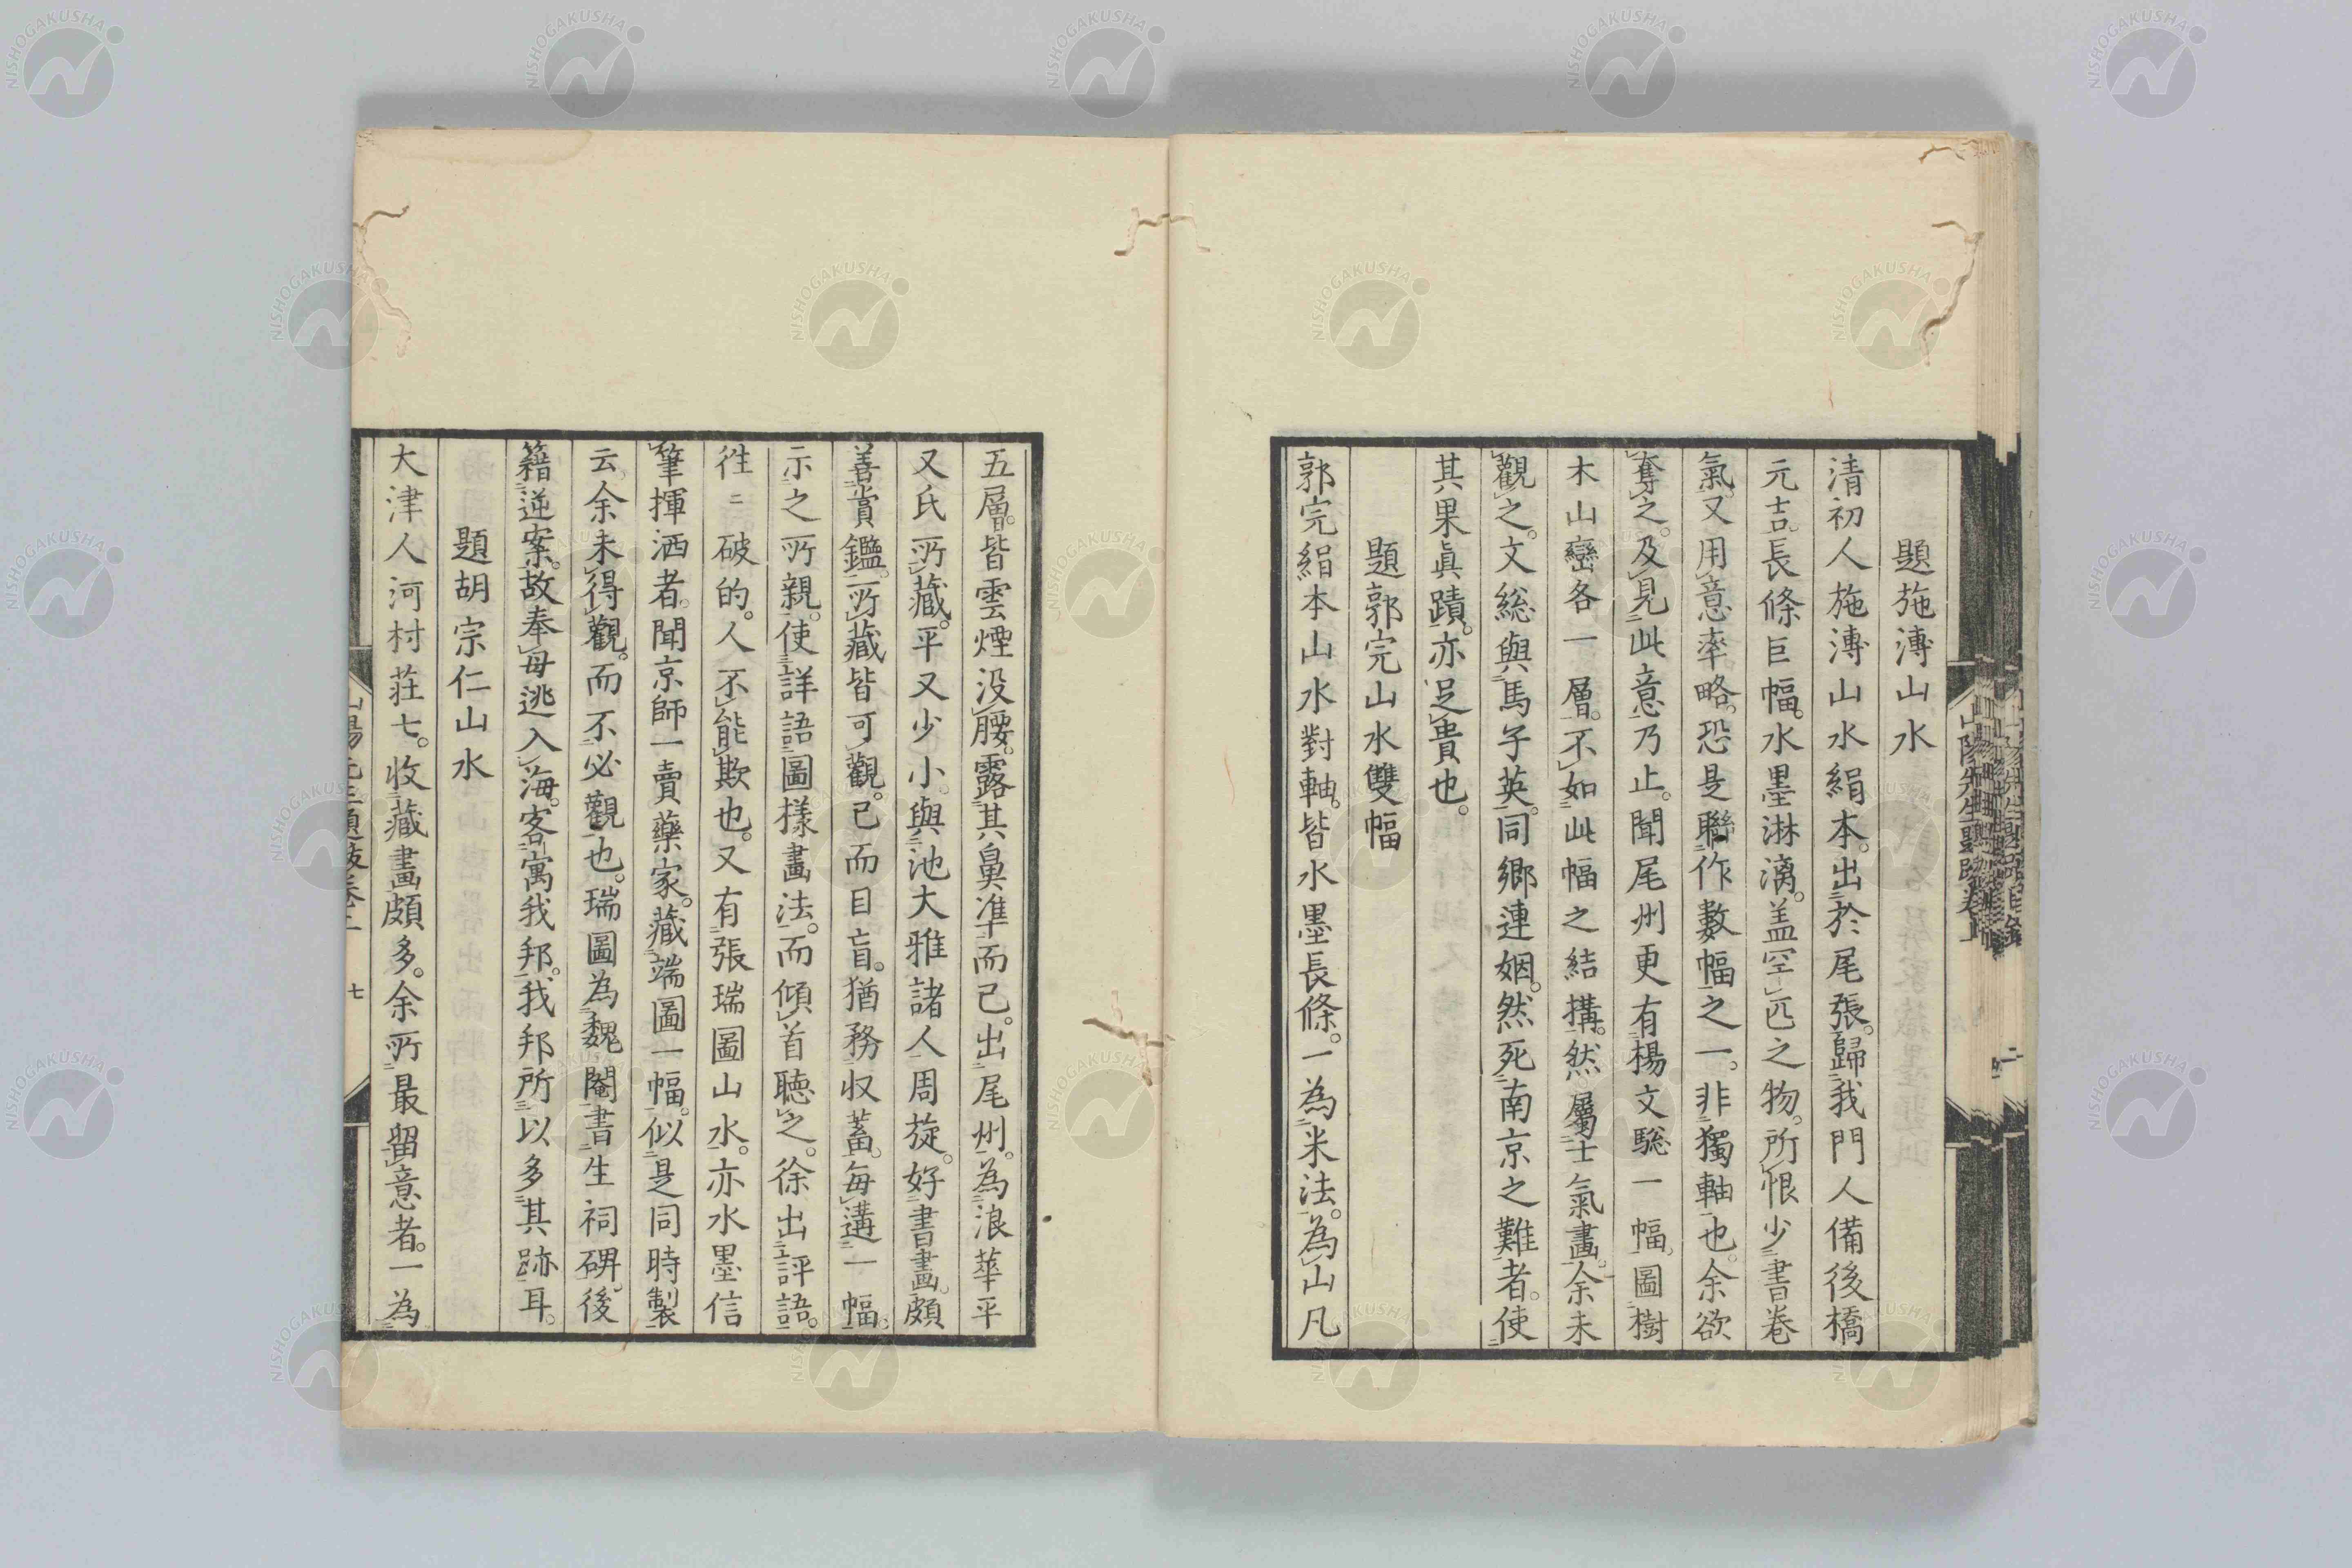 題施溥山水
清初人施溥山水絹本。出於尾張。歸我門人備後橋
元吉。長條巨幅。水墨淋漓。盖空匹之物。所恨少書卷
氣。又用意率略。恐是聯作數幅之一。非獨軸也。余欲
奪之。及見此意乃止。聞尾州更有楊文驄一幅。圖樹
木山巒各一層。不如此幅之結搆。然屬士氣畫。余未
觀之。文総與馬子英。同鄉連姻。然死南京之難者。使
其果眞蹟。亦足貴也。
題郭完山水雙幅
郭完絹本山水對軸。皆水墨長條。一為米法。為山凡
五層。皆雲煙没腰。露其鼻準而已。出尾州。為浪華平
又氏所藏。平又少小與池大雅諸人周旋。好書畫。頗
善賞鑑。所藏皆可觀。已而目盲。猶務収蓄。每遘一幅。
示之所親。使詳語圖樣畫法。而傾首聴之。徐出評語。
徃〻破的。人不能欺也。又有張瑞圖山水。亦水墨信
筆揮洒者。聞京師一賣藥家。藏瑞圖一幅。似是同時製
云。余未得觀。而不必觀也。瑞圖為魏閹書生祠碑。後
籍逆案。故奉母逃入海。客寓我邦。我邦所以多其跡耳。
題胡宗仁山水
大津人河村莊七。收藏畫頗多。余所最留意者。一為
七
NISHOGAKUSHA